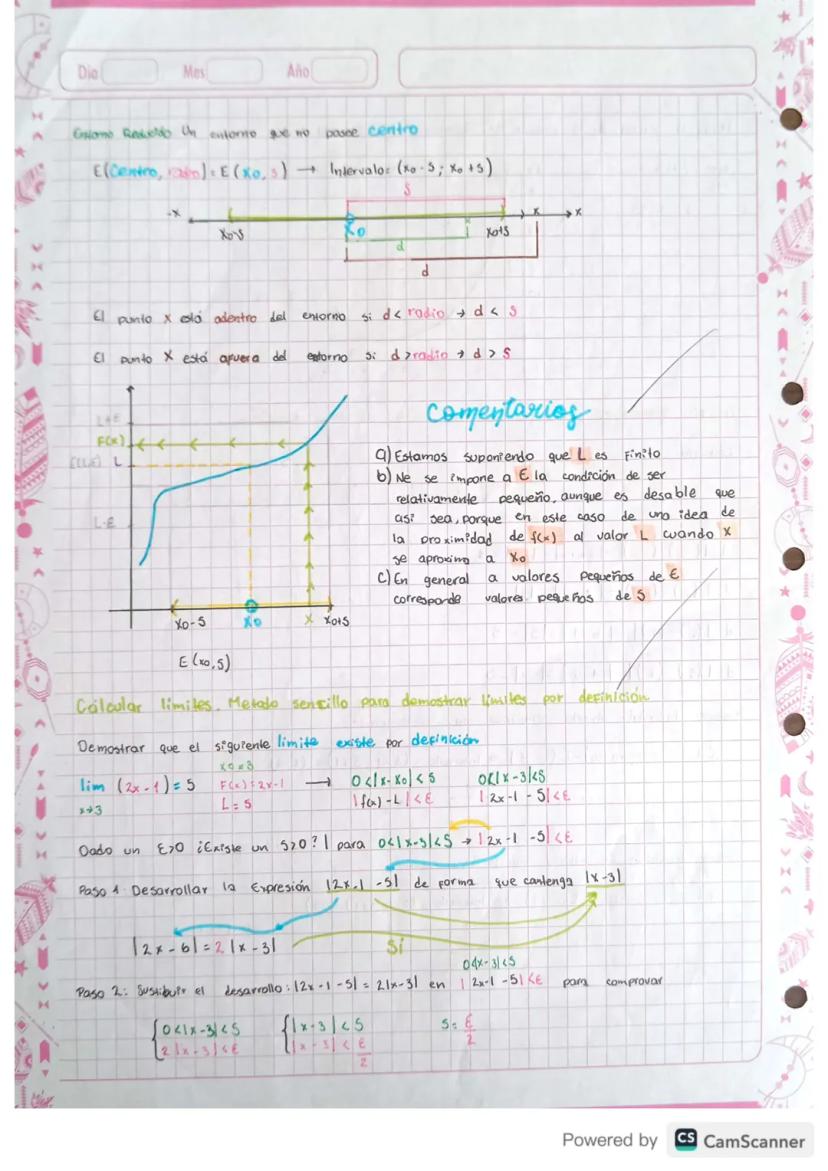 Dia Mes Año
Entorno Reducido Un entorno que no posee centro
E(Centro, radio) = E(x0, s) → Intervalo: (x0 - s ; x0 + s)
s
-x x0-s x0 x0+s x x
d
d
El punto x está adentro del entorno si d< radio → d < s
El punto x está afuera del entorno si d > radio → d > s
comentarios
L+E
F(x)
L
L-E
x0-s x0 x x0+s
E(x0,s)
a) Estamos suponiendo que L es Finito
b) Ne se impone a E la condición de ser
relativamente pequeño, aunque es desable que
así sea, porque en este caso de una idea de
la proximidad de f(x) al valor L cuando x
se aproxima a x0
c) En general a valores pequeños de E
corresponde valores pequeños de s
Cálcular límites. Metodo sencillo para demostrar límites por definición
Demostrar que el siguiente limite existe por definición
x0=3
lim (2x-1) = 5 F(x)=2x-1 → 0<|x-x0|<s 0<|x-3|<s
x→3 L=5 |f(x)-L|<E |2x-1 -5|<E
Dado un E>0 ¿Existe un s>0? | para 0<|x-3|<s → |2x-1 -5|<E
Paso 1 Desarrollar la Expresión |2x-1 -5| de forma que contenga |x-3|
|2x-6| = 2|x-3| Sí
0<|x-3|<s
Paso 2: Sustibuir el desarrollo: |2x-1-5| = 2|x-3| en |2x-1 -5|<E para comprovar
{0<|x-3|<s {|x-3|<s s=E/2
2|x-3|<E |x-3|<E/2
Powered by CS CamScanner